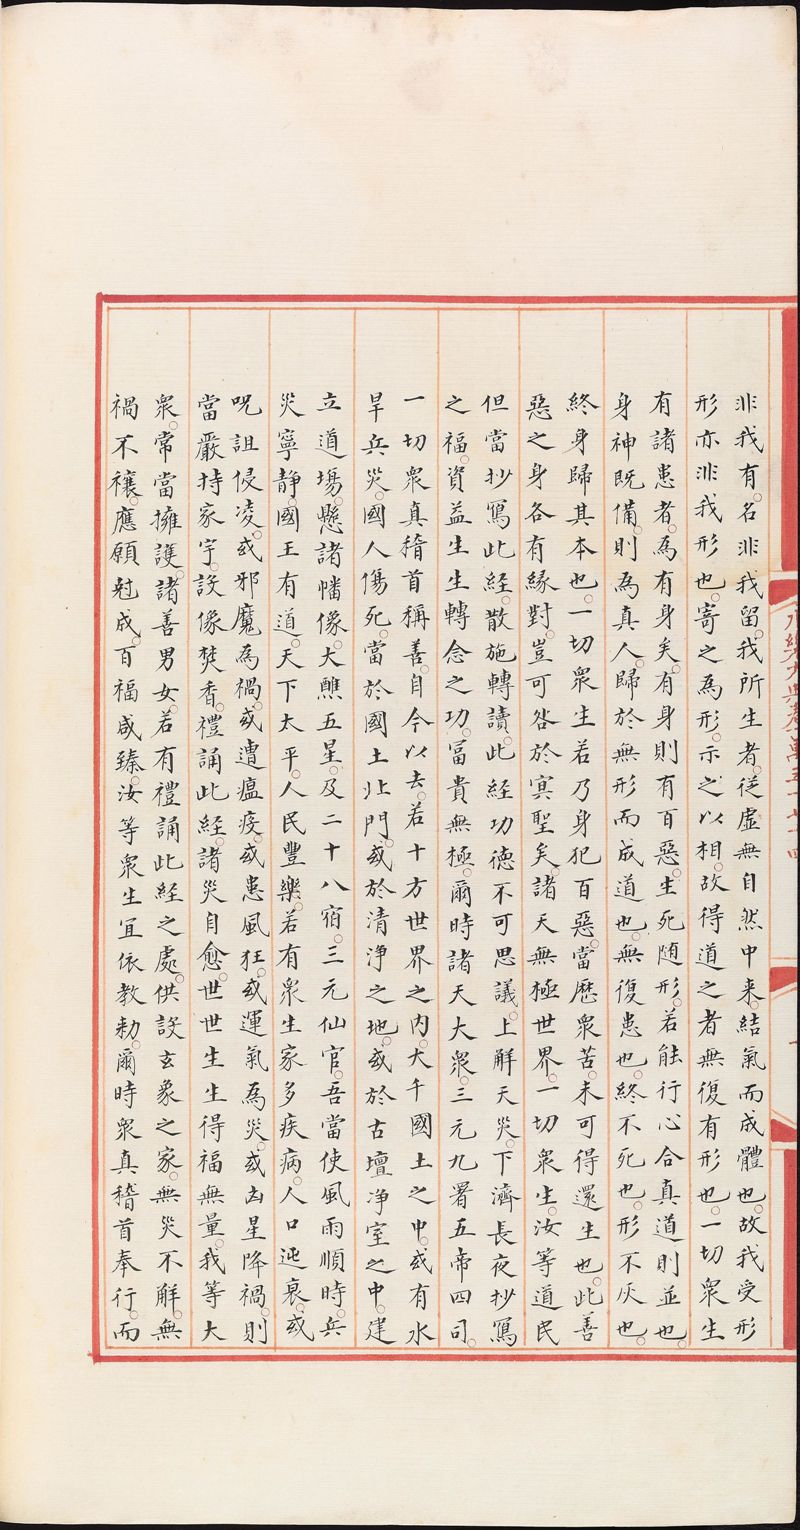 非我有。名非我留。我所生者。從虛無自然中来。結氣而成體也。故我受形
形亦非我形也。寄之為形。示之以相。故得道之者無復有形也。一切衆生
有諸患者。為有身矣。有身則有百惡。生死随形。若能行心合真道則並也。
身神既備。則為真人。歸於無形而成道也。無復患也。終不死也。形不灰也。
終身歸其本也。一切衆生若乃身犯百惡。當歷衆苦。未可得還生也。此善
惡之身各有緣對。豈可咎於冥聖矣。諸天無極世界。一切衆生。汝等道民
但當抄寫此經。散施轉讀。此經功德不可思議。上解天災。下濟長夜抄寫
之福。資益生生轉念之功。富貴無極。爾時諸天大衆。三元九署五帝四司。
一切衆真稽首稱善。自今以去。若十方世界之内。大千國土之中。或有水
旱兵災。國人傷死。當於國土北門。或於清淨之地。或於古壇淨室之中。建
立道塲。懸諸幡像。大醮五星。及二十八宿。三元仙官。吾當使風雨順時。兵
災寧静。國王有道。天下太平。人民豐樂。若有衆生家多疾病。人口迍衰。或
呪詛侵凌。或邪魔為禍。或遭瘟疫。或患風狂。或運氣為災。或凶星降禍。則
當嚴持家宇。設像焚香。禮誦此經。諸災自愈。世世生生得福無量。我等大
衆。常當擁護。諸善男女。若有禮誦此經之處。供設玄象之家。無災不解。無
禍不禳。應願尅成。百福咸臻。汝等衆生宜依教勑。爾時衆真稽首奉行。而